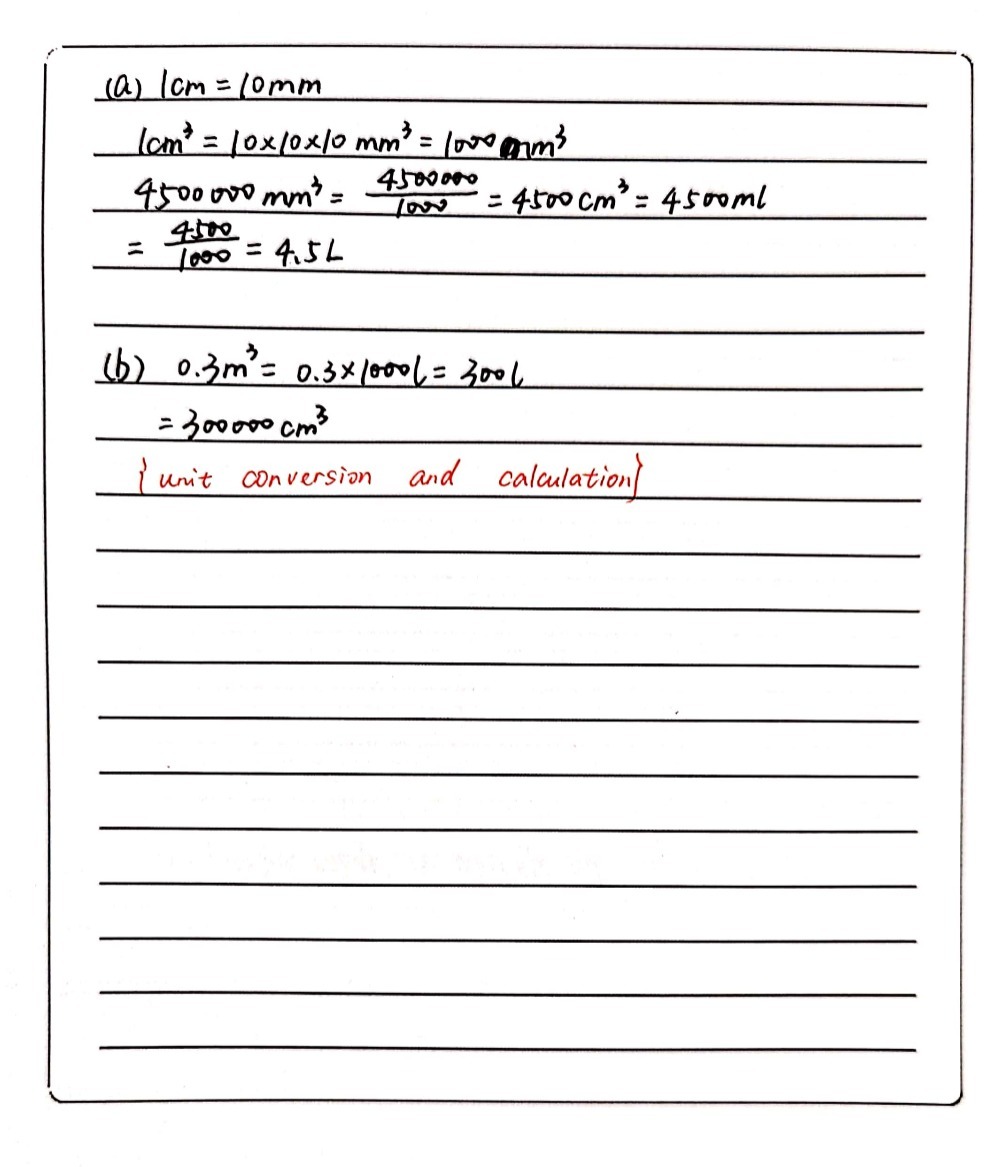 (a) 1cm = 10mm
1cm³ = 10×10×10 mm³ = 1000 mm³
4500000 mm³ = 4500000/1000 = 4500 cm³ = 4500ml
= 4500/1000 = 4.5L
(b) 0.3m³ = 0.3×1000l = 300l
= 300000 cm³
{unit conversion and calculation}